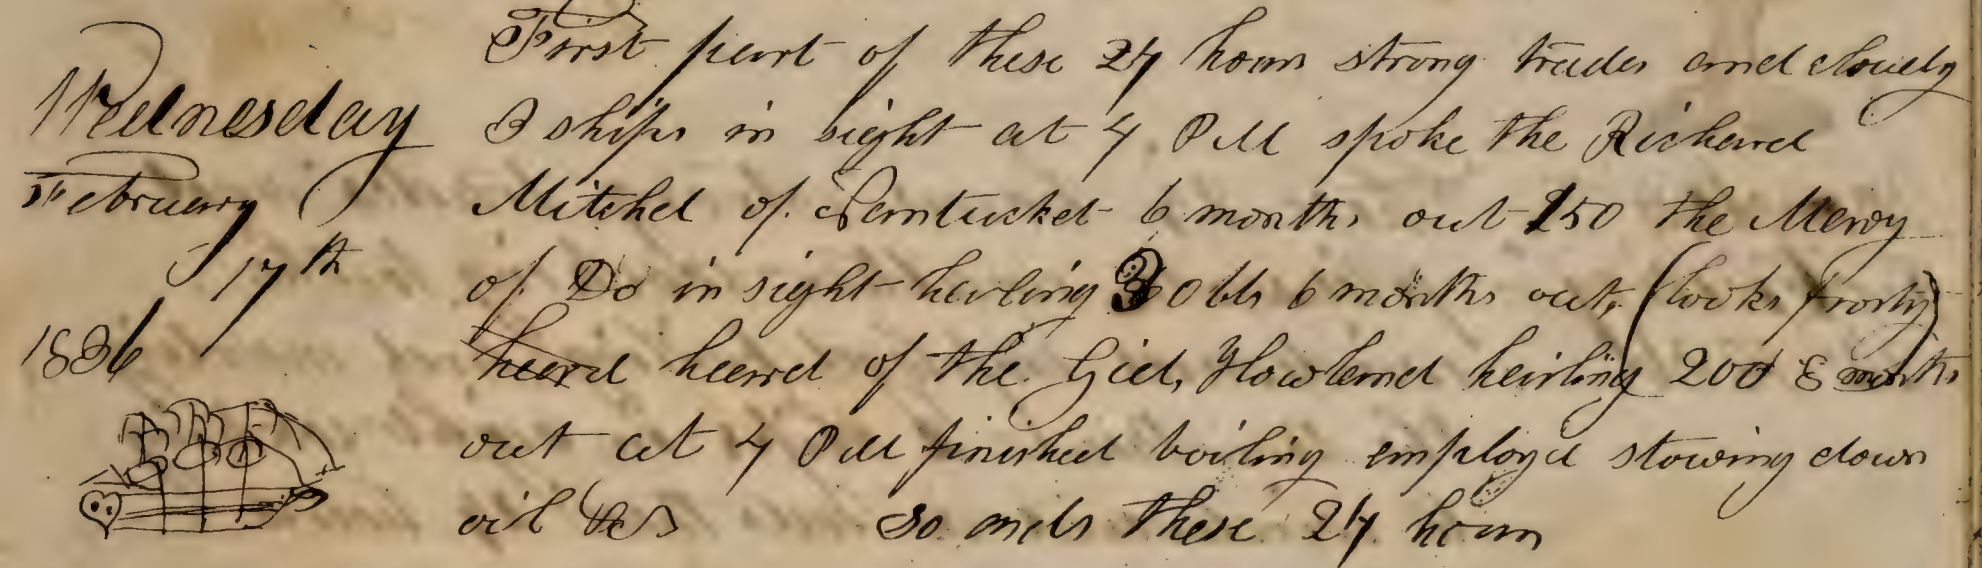 Wednesday
February
17th
1836
First part of these 24 hours strong trades and cloudy
3 ships in sight at 4 PM spoke the Richard
Mitchel of Nantucket 6 months out 150 the Mercy
of Do in sight haveing 30 bls 6 months out, (looks frosty)
heard heard of the Gid, Howland haveing 200 8 months
out at 4 PM finished boiling employd stowing down
oil &c
So ends these 24 hours